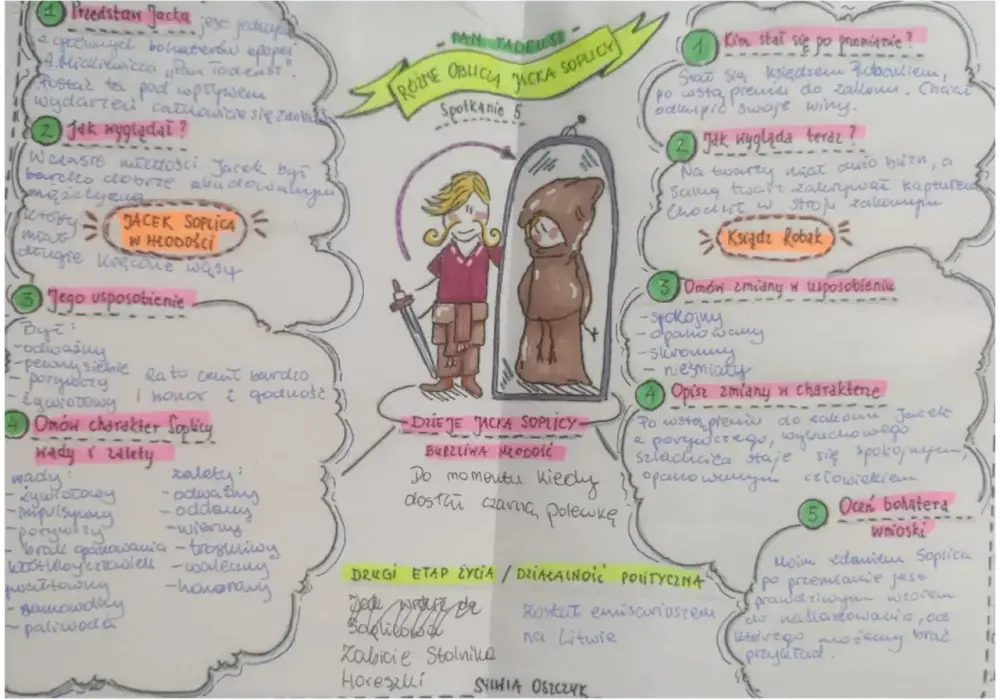 1 Przedstaw Jacka
jest jednym
z głównych bohaterów epopei
A. Mickiewicza „Pan Tadeusz".
Postać ta pod wpływem
wydarzeń całkowicie się
2 Jak wyglądał?
W czasie młodości Jacek był
bardzo dobrze zbudowanym
mężczyzną
który
miał
długie kręcone wąsy
JACEK SOPLICA
W MŁODOŚCI
3 Jego usposobienie
Był:
- odważny
- pewny siebie
- porywczy
- żywiołowy
Za to cenił bardzo
honor i godność
4 Omów charakter Soplicy
wady i zalety
wady:
- żywiołowy
- impulsywny
- porywczy
- brak opanowania
- samowolny
- paliwoda
zalety:
- odważny
- oddany
- wierny
- troskliwy
- waleczny
- honorowy
PAN TADEUSZ
RÓŻNE OBLICZA JACKA SOPLICY
Spotkanie 5
DZIEJE JACKA SOPLICY
BURZLIWA MŁODOŚĆ
Do momentu kiedy
dostał czarną polewkę
DRUGI ETAP ŻYCIA / DZIAŁALNOŚĆ POLITYCZNA
Zabicie Stolnika
Horeszki
Został emisariuszem
na Litwie
SYLWIA OSZCZYK
1 Kim stał się po przemianie?
Stał się księdzem Robakiem,
po wstąpieniu do zakonu. Chciał
odkupić swoje winy.
2 Jak wygląda teraz?
Na twarzy miał dużo blizn, a
samą twarz zakrywał kapturem
Chodził w stroju zakonnym
Ksiądz Robak
3 Omów zmiany w usposobieniu
- spokojny
- opanowany
- skromny
- nieśmiały
4 Opisz zmiany w charakterze
Po wstąpieniu do zakonu Jacek
z porywczego, wybuchowego
szlachcica staje się spokojnym,
opanowanym człowiekiem
5 Oceń bohatera
wnioski
Moim zdaniem Soplica
po przemianie jest
prawdziwym wzorem
do naśladowania, od
którego możemy brać
przykład.